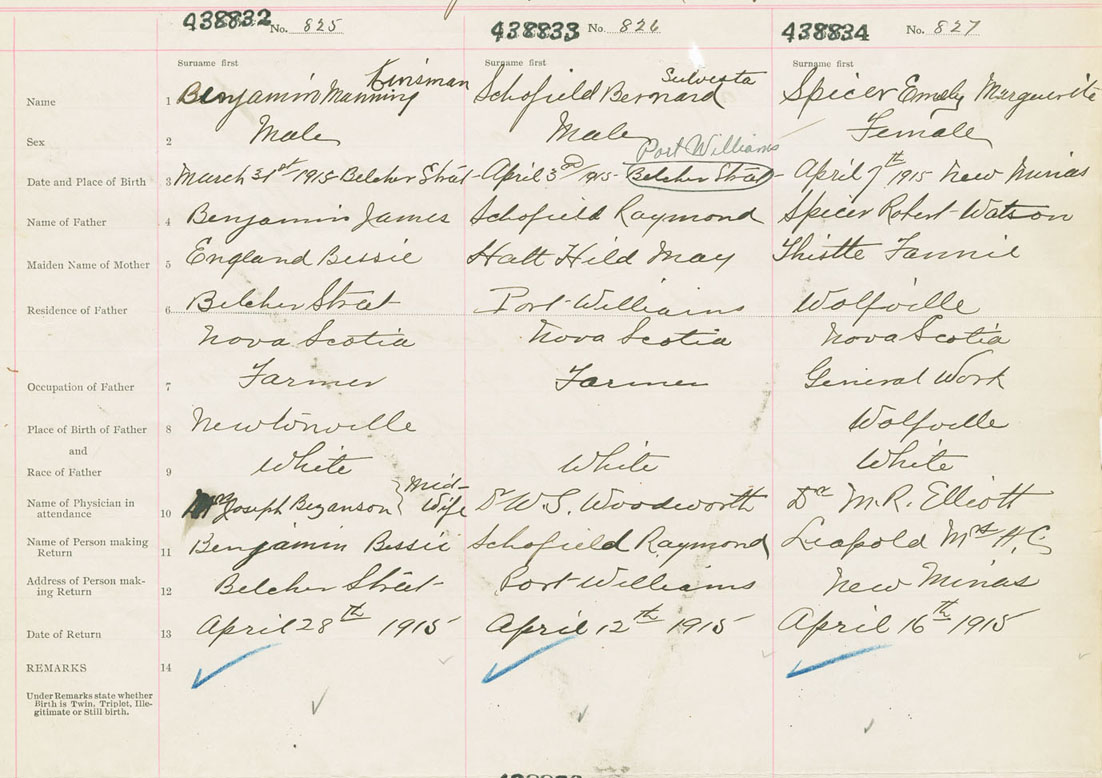 438832 No. 825 438833 No. 826 438834 No. 827
Surname first Surname first Surname first
Kinsman Sulvesta
Name 1 Benjamin Manning Schofield Bernard Spicer Emely Marguerite
Sex 2 Male Male Female
Port Williams
Date and Place of Birth 3 March 31st 1915 Belcher Street April 3rd 1915 Belcher Street April 7th 1915 New Minas
Name of Father 4 Benjamin James Schofield Raymond Spicer Robert Watson
Maiden Name of Mother 5 England Bessie Hatt Hild May Thistle Fannie
Residence of Father 6 Belcher Street Port Williams Wolfville
Nova Scotia Nova Scotia Nova Scotia
Occupation of Father 7 Farmer Farmer General Work
Place of Birth of Father 8 Newtonville Wolfville
and
Race of Father 9 White White White
Name of Physician in
attendance 10 Mrs Joseph Bezanson } Mid-Wife Dr W. S. Woodworth Dr M. R. Elliott
Name of Person making
Return 11 Benjamin Bessie Schofield Raymond Leapold Mrs H.C.
Address of Person mak-
ing Return 12 Belcher Street Port Williams New Minas
Date of Return 13 April 28th 1915 April 12th 1915 April 16th 1915
REMARKS 14
Under Remarks state whether
Birth is Twin, Triplet, Ille-
gitimate or Still birth.